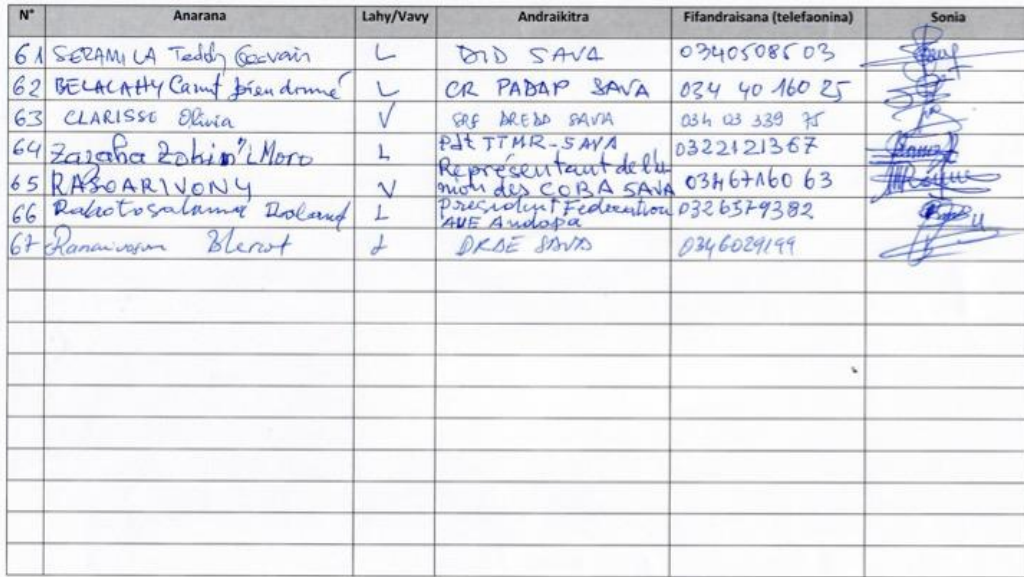 N° Anarana Lahy/Vavy Andraikitra Fifandraisana (telefaonina) Sonia
61 SERAMILA Teddy Gervais L DID SAVA 0340508503
62 BELALAHY Camt Dieudonné L CR PADAP SAVA 034 40 160 25
63 CLARISSE Olivia V DREDD SAVA 034 03 339 75
64 Zazaha Zokin'i Moro L Pdt TTMR-SAVA 0322121367
65 RASOARIVONY V Représentant de l'U
nion des COBA SAVA 03467160 63
66 Rakotosalama Roland L President Federation 0326579382
AUE Andapa
67 Blericot L DRAE SAVA 0346029199